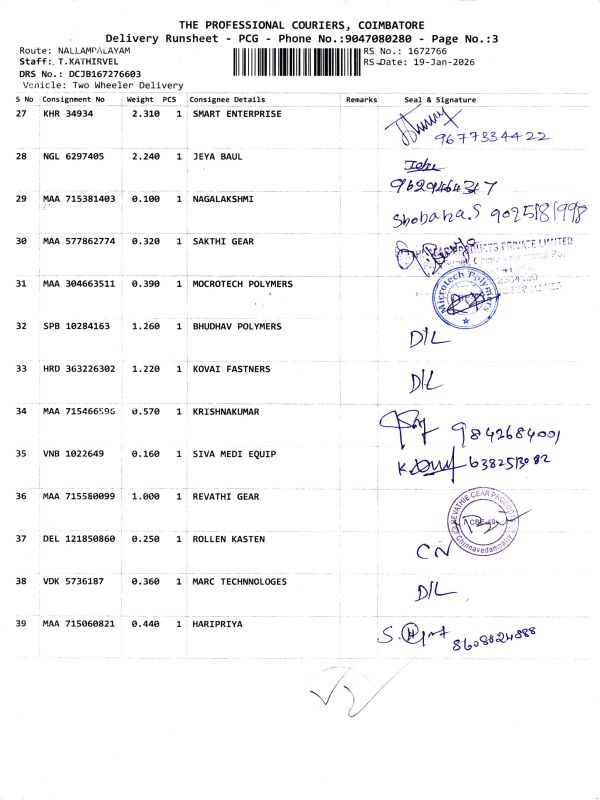 THE PROFESSIONAL COURIERS, COIMBATORE
Delivery Runsheet - PCG - Phone No.:9047080280 - Page No.:3
Route: NALLAMPALAYAM RS No.: 1672766
Staff: T.KATHIRVEL RS-Date: 19-Jan-2026
DRS No.: DCJB167276603
Vehicle: Two Wheeler Delivery
S No Consignment No Weight PCS Consignee Details Remarks Seal & Signature
27 KHR 34934 2.310 1 SMART ENTERPRISE
9677334422
28 NGL 6297405 2.240 1 JEYA BAUL
9629464347
29 MAA 715381403 0.100 1 NAGALAKSHMI Shobana.S 9025181998
30 MAA 577862774 0.320 1 SAKTHI GEAR
PRODUCTS PRIVATE LIMITED
31 MAA 304663511 0.390 1 MOCROTECH POLYMERS Microtech Polymers
32 SPB 10284163 1.260 1 BHUDHAV POLYMERS D/L
33 HRD 363226302 1.220 1 KOVAI FASTNERS D/L
34 MAA 715466596 0.570 1 KRISHNAKUMAR 9842684001
35 VNB 1022649 0.160 1 SIVA MEDI EQUIP 6382513082
36 MAA 715580099 1.000 1 REVATHI GEAR REVATHIE GEAR PRODUCTS
CBE-49
Chinnavedampatty
37 DEL 121850860 0.250 1 ROLLEN KASTEN CN
38 VDK 5736187 0.360 1 MARC TECHNNOLOGES D/L
39 MAA 715060821 0.440 1 HARIPRIYA 8608824888